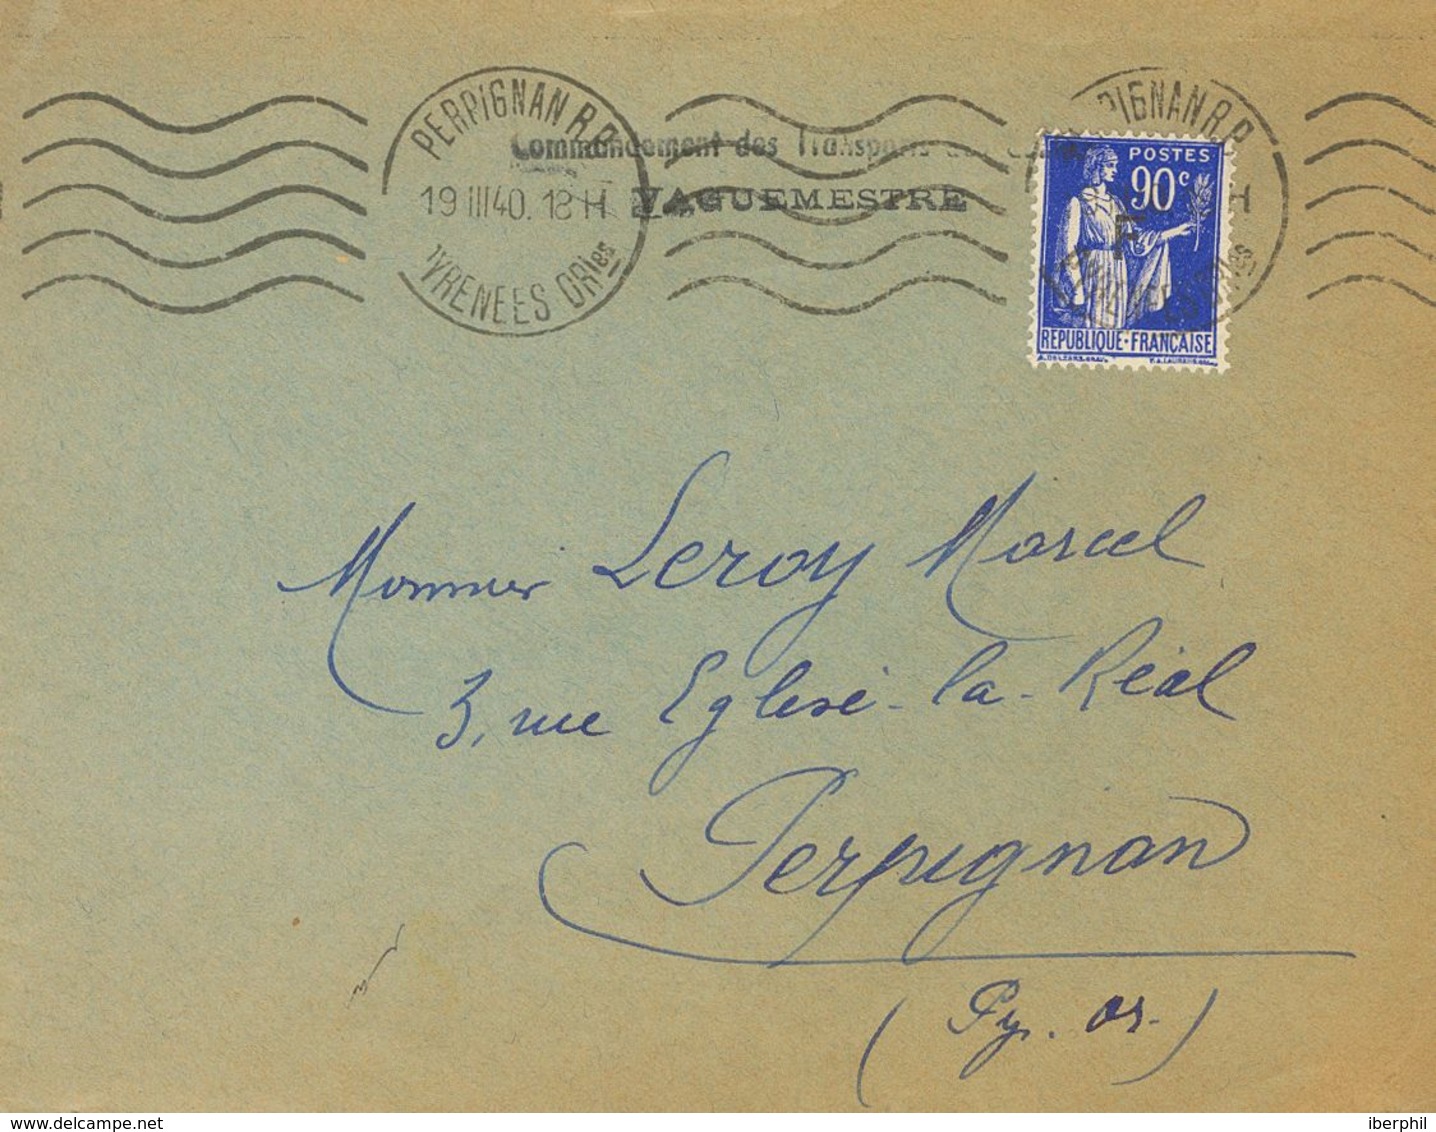 PERPIGNAN R.P.
19 III 40. 18 H
PYRENEES ORles
Commandement des Transports
VAGUEMESTRE
PIGNAN R.P.
H
POSTES
90c
F
REPUBLIQUE·FRANÇAISE
Monsieur Leroy Marcel
3, rue Eglise-la-Réal
Perpignan
(Py. Or.)
www.delcampe.net
iberphil